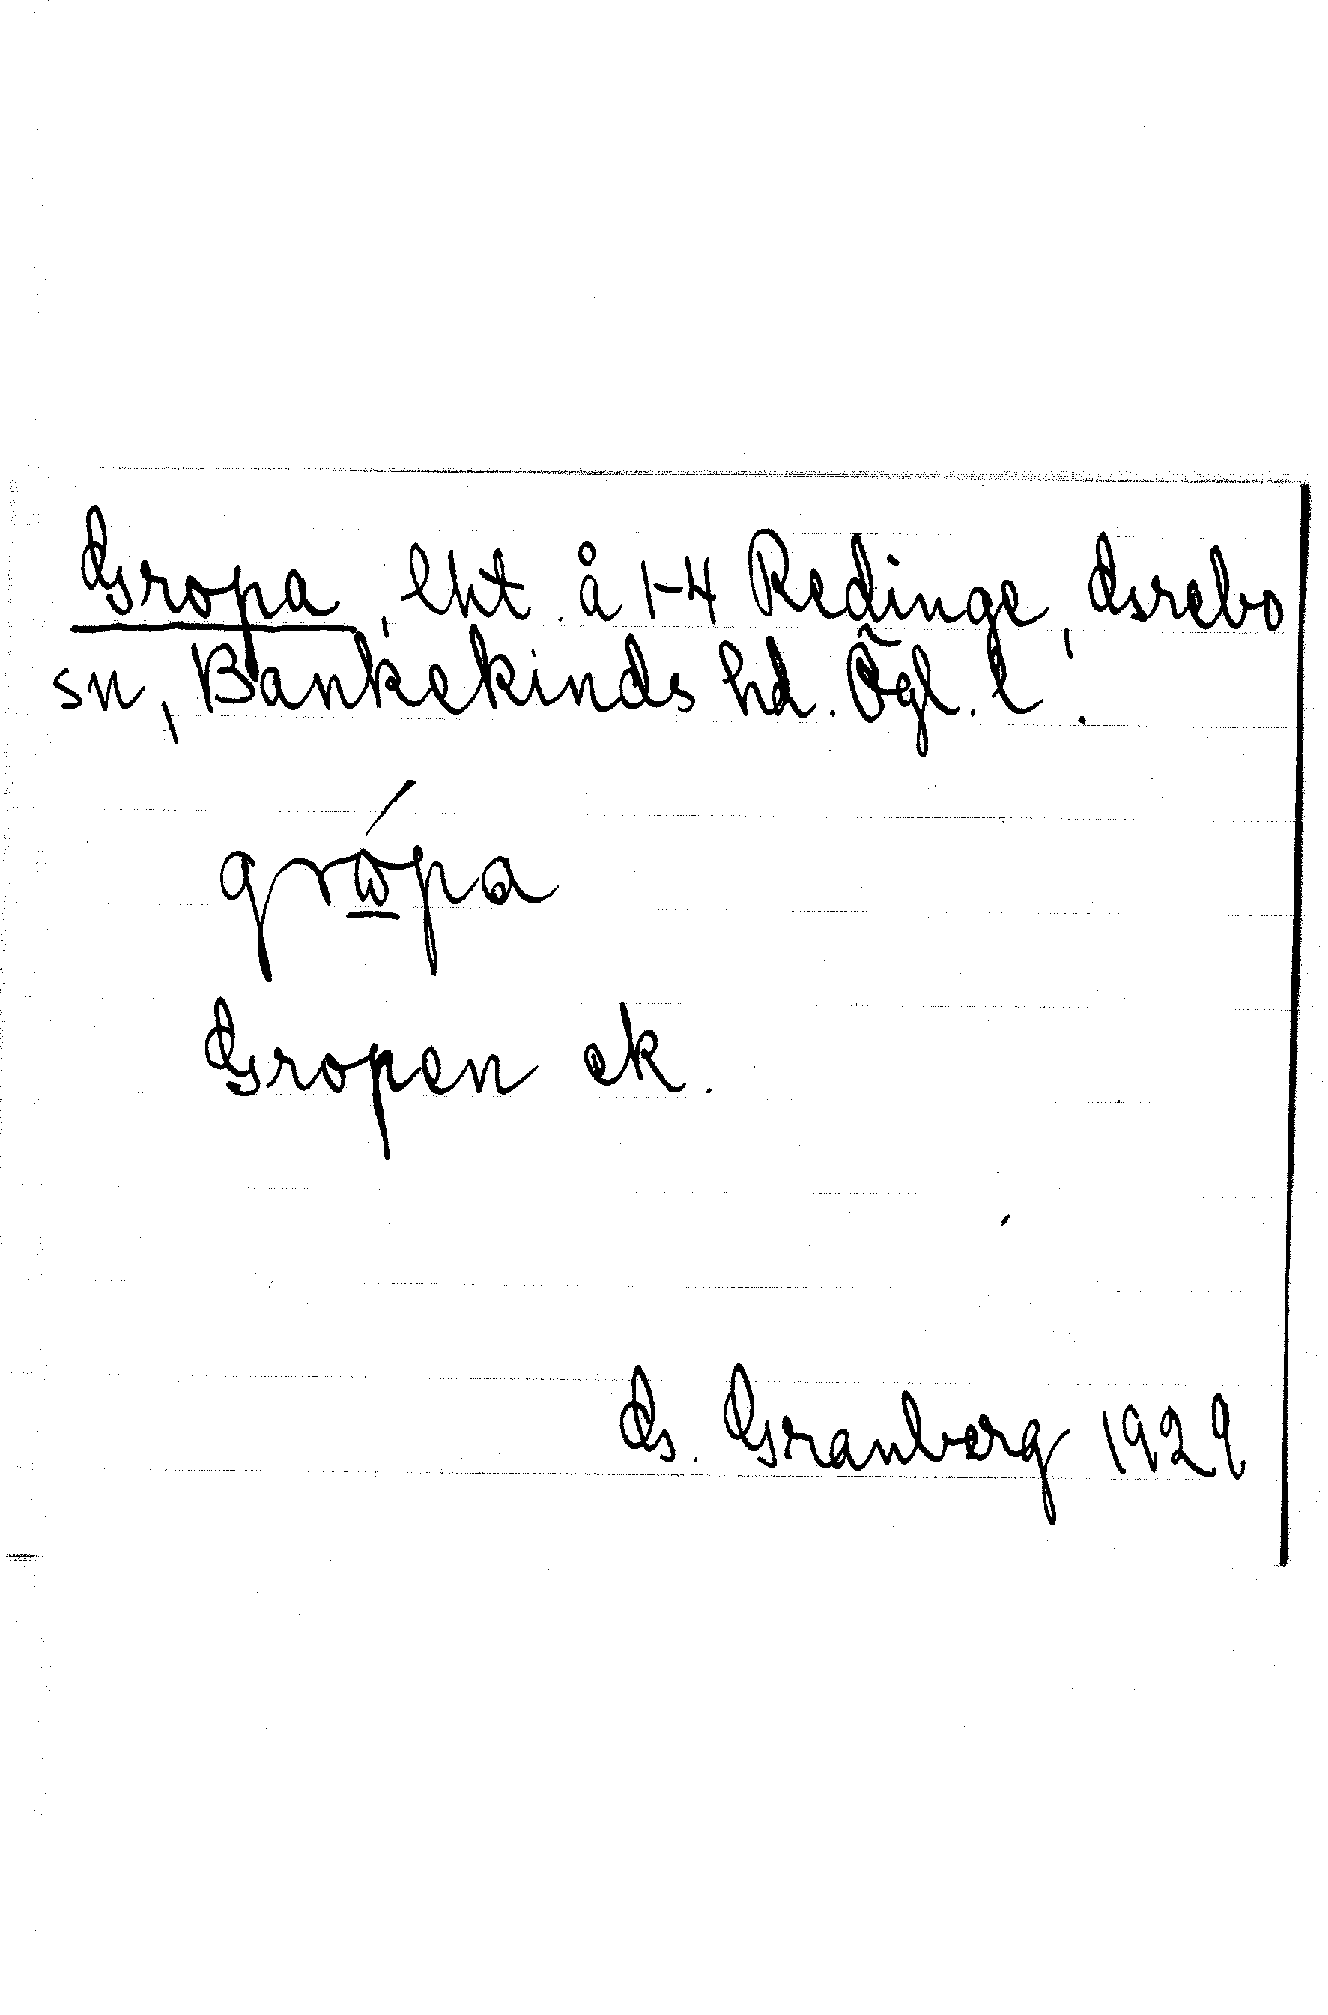 Gropa, lht. å 1-4 Redinge, Grebo
sn, Bankekinds hd. Ögl. l.
grώ̲pa
Gropen ek.
G. Granberg 1929